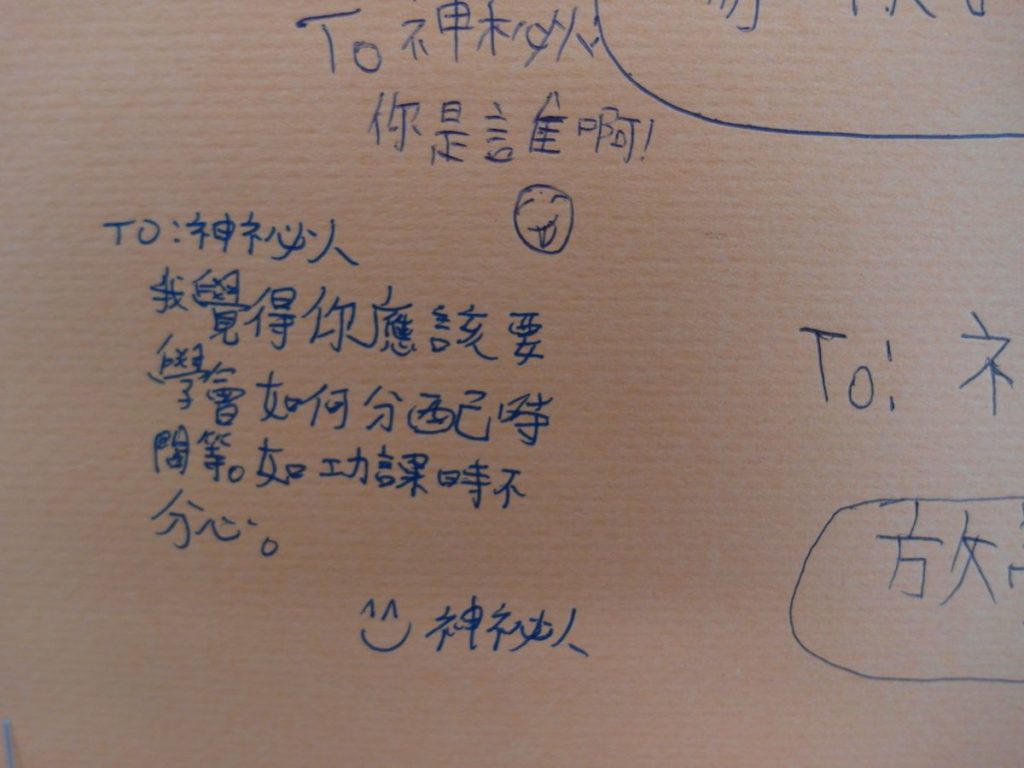 To 神秘人
你是誰啊!
TO:神祕人
我覺得你應該要
學會如何分配時
間等。如功課時不
分心。
神祕人
To: 神
放